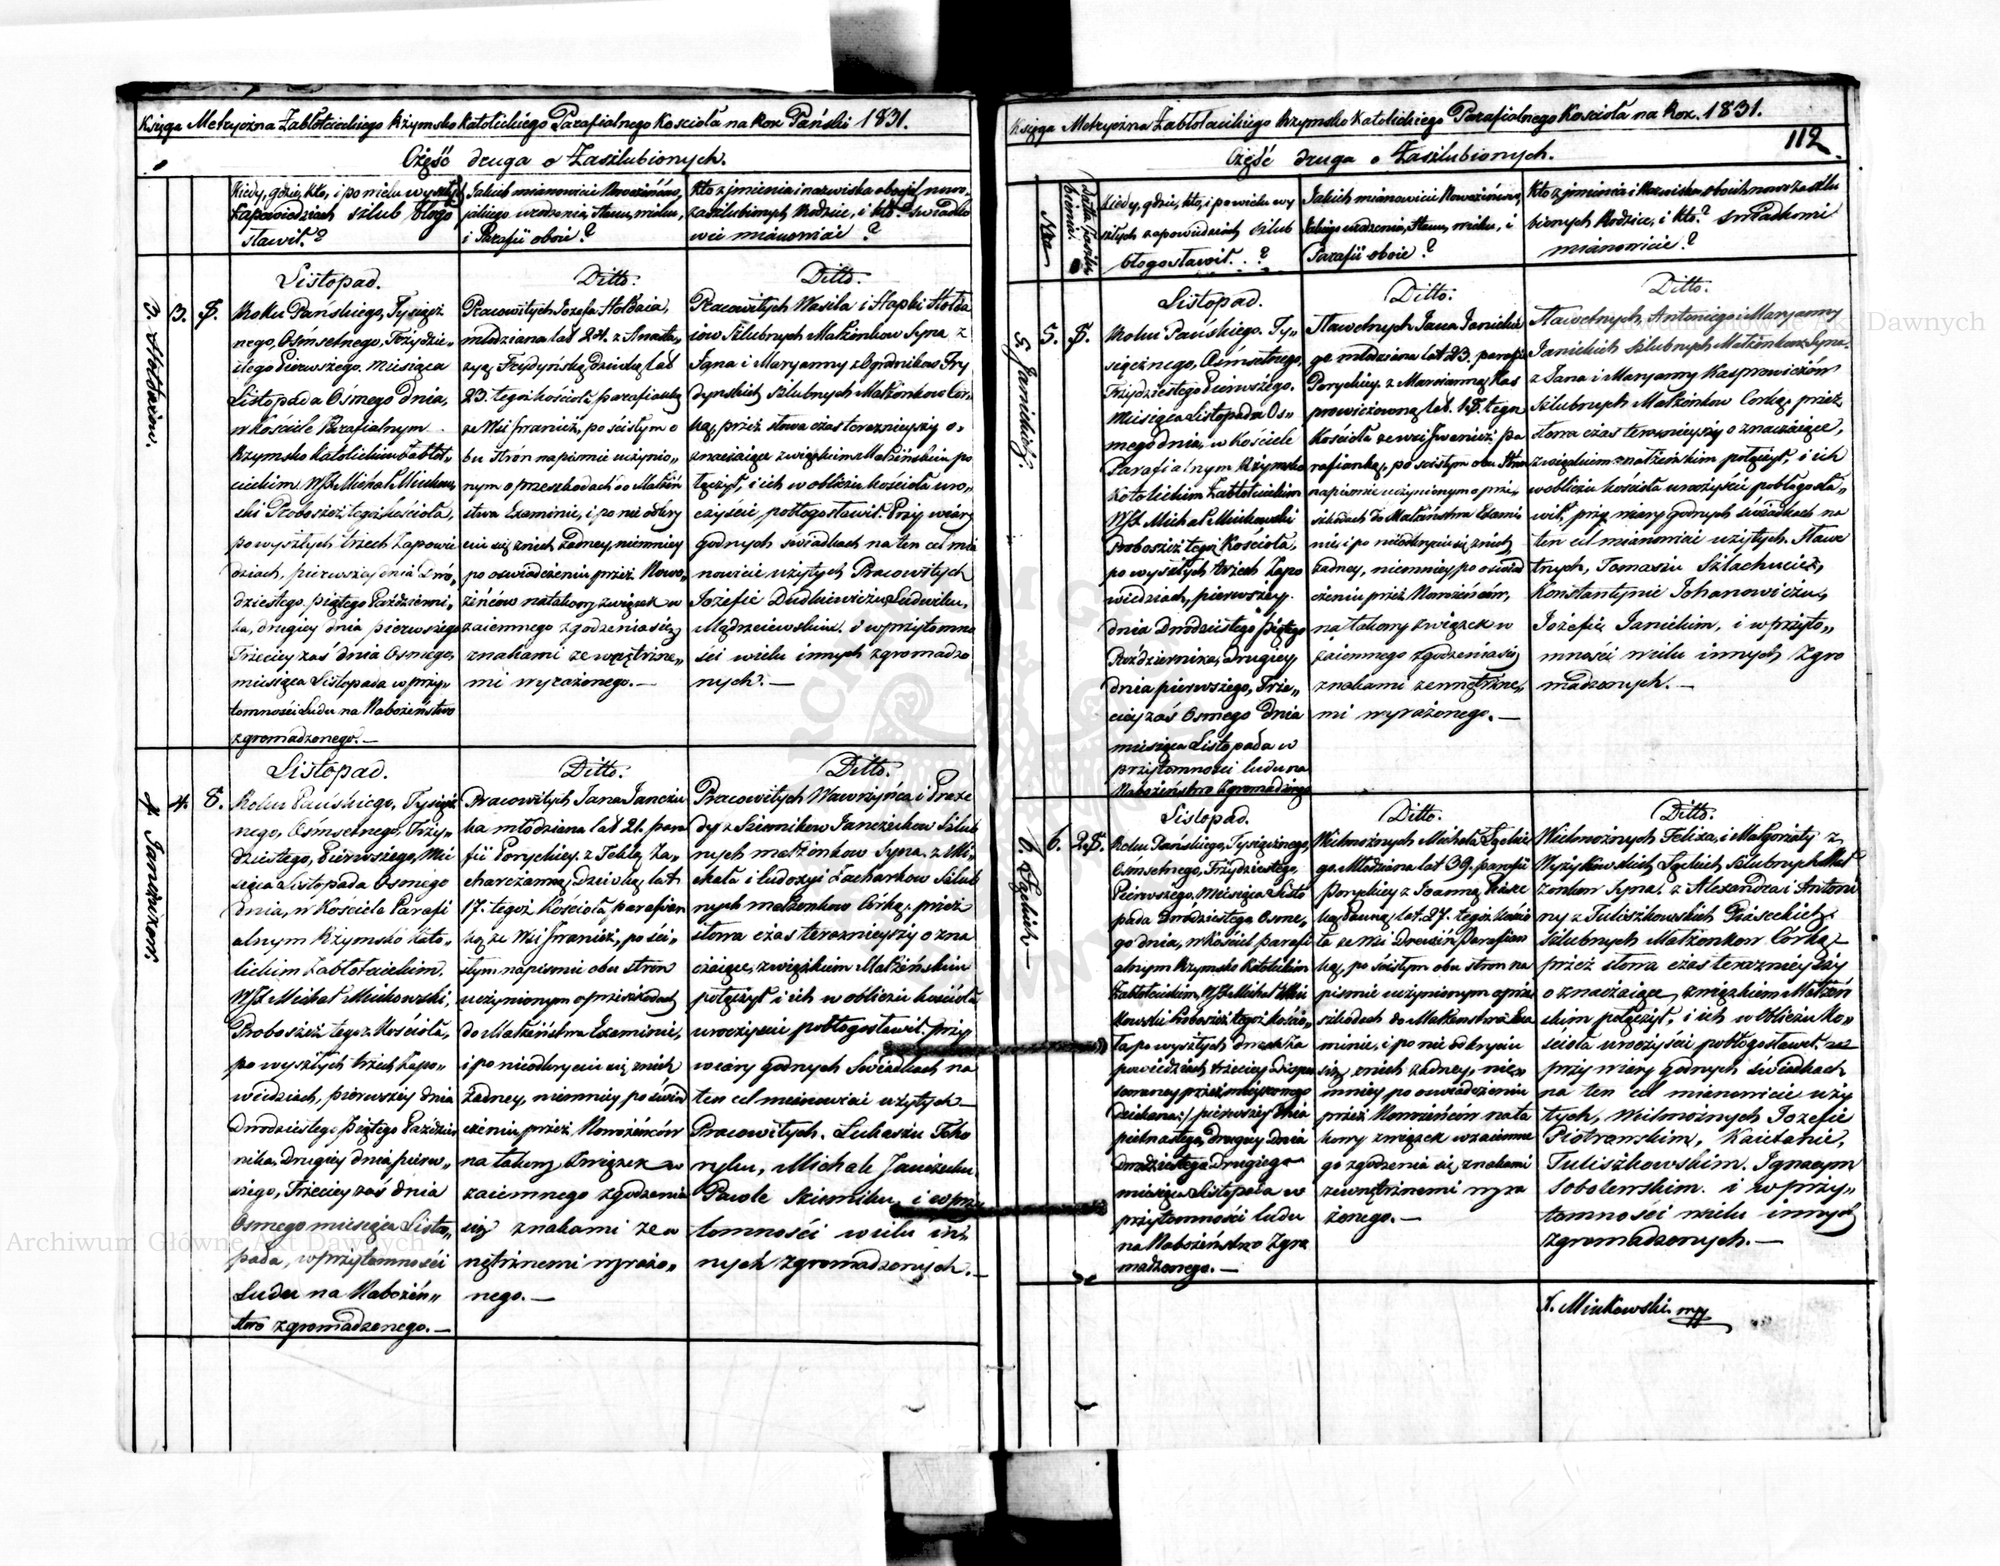 Księga Metryczna Zabłoteckiego Rzymsko Katolickiego Parafialnego Kościoła na Rok Pański 1831.
Część druga o Zaszlubionych.
Kiedy, gdzie, kto, i po wielu wyszłych
Zapowiedziach szlub błogo
sławił?
Jakich mianowicie Nowożeńców,
jakiego urodzenia, stanu, wieku,
i Parafii oboie?
Kto z jmienia i nazwiska oboych nowo
zaszlubionych Rodzice, i kto? świadko
wei mianowicie?
Listopad.
3.
8.
Roku Pańskiego, Tysiącz
nego, Ośmsetnego, Trzydzie
stego Pierwszego, Miesiąca
Listopada Ósmego Dnia,
w Kościele Parafialnym
Rzymsko Katolickim Zabłot„
eckim. WJX Michał Minkow
ski Proboszcz tegoż Kościoła,
po wyszłych trzech Zapowie
dziach, pierwszey dnia Dwó„
dziestego piątego Październi„
ka, drugiey dnia pierwszego
Trzeciey zaś dnia Osmego,
miesiąca Listopada w przy„
tomności Ludu na Nabożeństwo
zgromadzonego.—
Ditto.
Pracowitych Józefa Hołdaia,
młodziana lat 24. z Anasta„
zyą Frydyńską Dziewką lat
23. tegoż kościoła parafianką
ze Wsi Iwanicz, po ścisłym o
bu stron na piśmie uczynio„
nym o przeszkodach do Małżeń
stwa Examinie, i po nie odkry
ciu się z nich żadney, niemniey
po oswiadczeniu przez Nowo„
żeńców na takowy związek w
zaiemnego zgodzenia się
znakami zewnętrzne„
mi wyrażonego.—
Ditto.
Pracowitych Wasila i Hapki Hołda
iow Szlubnych Małżonkow Syna z
Jana i Maryanny z Ogrodnikow Fry
dynskich Szlubnych Małżonkow Cór„
ką, przez słowa czas teraznieyszy o„
znaczaiące związkiem Małżeńskim po
łączył, i ich w obliczu kościoła uro„
czyście pobłogosławił. Przy wiary
godnych świadkach na ten cel mia
nowicie użytych Pracowitych
Jozefie Dudkiewiczu, Ludwiku,
Mądrzeiewskim. i w przytomno
ści wielu innych zgromadzo
nych.—
Listopad.
4. Janczukow.
4.
8.
Roku Pańskiego, Tysiącz
nego, Ośmsetnego, Trzy„
dziestego, Pierwszego, Mie
siąca Listopada Osmego
Dnia, w Kościele Parafi
alnym Rzymsko Kato„
lickim Zabłoteckim.
WJX Michał Minkowski,
Proboszcz tegoż Kościoła,
po wyszłych trzech Zapo„
wiedziach, pierwszey dnia
Dwódziestego Piątego Paździer
nika, Drugiey dnia pierw„
szego, Trzeciey zaś dnia
Osmego miesiąca Listo„
pada, w przytomności
Ludu na Nabożeń„
stwo zgromadzonego.—
Ditto.
Pracowitych Jana Janczu
ka młodziana lat 21. para
fii Poryckiey. z Teklą Za„
charczanną Dziewką lat
17. tegoż Kościoła parafian
ką ze Wsi Iwanicz, po ści„
słym na pismie obu stron
uczynionym o przeszkodach
do Małżeństwa Examinie,
i po nieodkryciu się z nich
żadney, niemniey po oświad
czeniu przez Nowożeńców
na takowy Związek w
zaiemnego zgodzenia
się znakami zew
nętrznemi wyrażo„
nego.—
Ditto.
Pracowitych Wawrzyńca i Praxe
dy z Szewnikow Janczukow Szlub
nych małżonkow Syna. z Mi„
chała i Eudoxyi Zacharkow Szlub
nych małżonkow Córką, przez
słowa czas teraznieyszy ozna
czaiące, związkiem Małżeńskim
połączył i ich w obliczu kościoła
uroczyscie pobłogosławił. przy
wiary godnych Swiadkach na
ten cel mianowicie użytych—
Pracowitych. Łukaszu
Michale Janczuku.
Pawle i w przy
tomności wielu in
nych zgromadzonych.—
Księga Metryczna Zabłoteckiego Rzymsko Katolickiego Parafialnego Kościoła na Rok. 1831.
112
Część druga o Zaszlubionych.
Nra
Datta Zaszlu
bienia.
Kiedy, gdzie, kto, i po wielu wy
szłych zapowiedziach szlub
błogosławił..?
Jakich mianowicie Nowożeńców,
Jakiego urodzenia, stanu, wieku, i
Parafii oboie?
Kto z jmienia i Nazwiska oboich nowo zaszlu
bionych Rodzice, i kto? Swiadkowie
mianowicie?
Listopad.
5. Janickich.
5.
8.
Roku Pańskiego. Ty„
siącznego, Osmsetnego,
Trzydziestego Pierwszego.
Miesiąca Listopada Os„
mego dnia, w kościele
Parafialnym Rzymsko
Katolickim Zabłoteckim
WJX Michał Minkowski
Proboszcz tegoż Kościoła,
po wyszłych trzech Zapo
wiedziach, pierwszey
dnia Dwódziestego Piątego
Października, Drugiey,
dnia pierwszego, Trze„
ciey zaś Osmego Dnia
miesiąca Listopada w
przytomności ludu na
Nabożeństwo Zgromadzonego
Ditto.
Sławetnych Jana Janickie
go młodziana lat 23. parafii
Poryckiey. z Maryanną Kas
prowiczowną lat. 18. tego
Kościoła ze wsi Iwanicz pa
rafianką, po scisłym obu stron
na pismie uczynionym o prze„
szkodach do Małżeństwa Exami
nie, i po nieodkryciu się z nich
żadney, niemniey po oświad
czeniu przez Nowożeńców,
na takowy związek w
zaiemnego zgodzenia się
znakami zewnętrzne„
mi wyrażonego.—
Ditto.
Sławetnych, Antoniego i Maryanny
Janickich Szlubnych Małżonkow Syna.
z Jana i Maryanny Kasprowiczów
Szlubnych Małżonkow Corką, przez
słowa czas teraznieyszy oznaczaiące,
związkiem małżeńskim połączył, i ich
w obliczu kościoła uroczyście pobłogosła„
wił, przy wiary godnych świadkach na
ten cel mianowicie użytych. Sławe
tnych, Tomaszu Szlachuciez,
Konstantynie Johanowiczu,
Jozefie Janickim, i w przyto„
mności wielu innych Zgro
madzonych.—
Listopad.
6. Łąckich—
6.
28.
Roku Pańskiego, Tysiącznego,
Ośmsetnego, Trzydziestego,
Pierwszego, Miesiąca Listo
pada Dwódziestego Osme„
go dnia, w Kościele parafi
alnym Rzymsko Katolickim
Zabłoteckim, WJX Michał Min
kowski Proboszcz tegoż Kościo„
ła po wyszłych dwoch Za
powiedziach trzeciey Dispen
sowaney przez mieyscowego
dziekana:/ pierwszey dnia
pietnastego, Drugiey Dnia
dwudziestego Drugiego
miesiąca Listopada w
przytomności ludu
na Nabożeństwo Zgro
madzonego.—
Ditto.
Wielmożnych Michała Łąckie
go Młodziana lat 39. parafii
Poryckiey z Joanną Pasec
ką Panną, lat. 27. tegoż Kościo
ła ze Wsi Parafian
ką, po ścisłym obu stron na
pismie uczynionym o prze
szkodach do Małżenstwa Exa
minie, i po nie odkryciu
się z nich żadney, nie„
mniey po oswiadczeniu
przez Nowożeńców na ta
kowy związek wzaiemne
go zgodzenia się, znakami
zewnętrznemi wyra
żonego.—
Ditto.
Wielmożnych Felixa, i Małgorzaty z
Wyżykowskich Łąckich, Szlubnych Mał
żonkow Syna, z Alexandra i Antoni
ny z Tuliszkowskich Paseckich
Szlubnych Małżonkow Córką—
przez słowa czas teraznieyszy
oznaczaiące, związkiem Małżeń
skim połączył, i ich w Obliczu Ko„
scioła uroczyści pobłogosławił.
przy wiary godnych świadkach
na ten cel mianowicie uży
tych, Wielmożnych Jozefie
Piotrowskim, Kaietanie,
Tuliszkowskim. Ignacym
Sobolewskim. i w przy„
tomności wielu innych
zgromadzonych.—
X. Minkowski mpp
Archiwum Główne Akt Dawnych